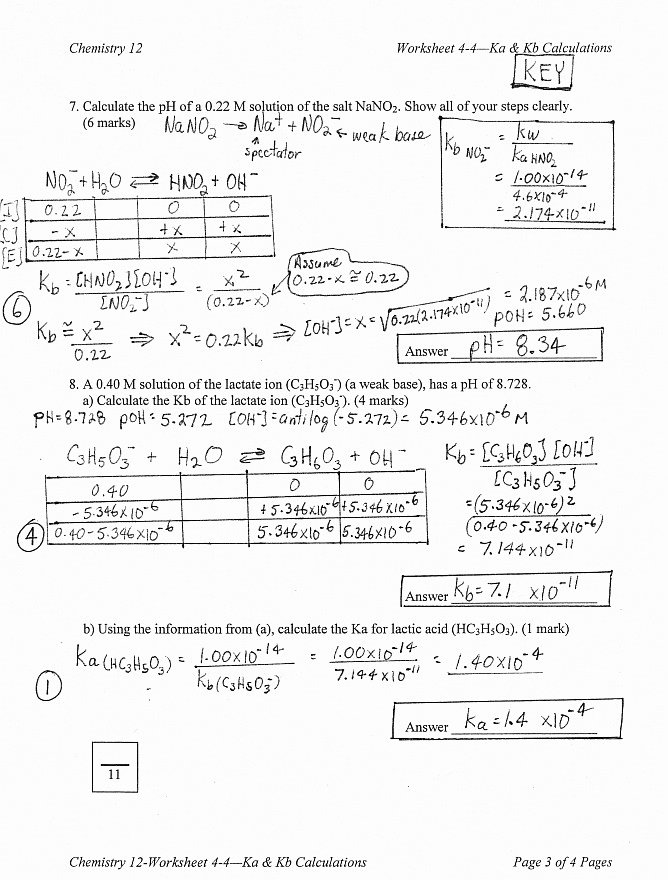 Chemistry 12 Worksheet 4-4—Ka & Kb Calculations
KEY
7. Calculate the pH of a 0.22 M solution of the salt NaNO₂. Show all of your steps clearly.
(6 marks) NaNO₂ → Na⁺ + NO₂⁻ ← weak base
↑
spectator
Kb NO₂⁻ = Kw / Ka HNO₂
= 1.00×10⁻¹⁴ / 4.6×10⁻⁴
= 2.174×10⁻¹¹
NO₂⁻ + H₂O ⇌ HNO₂ + OH⁻
[I] 0.22 0 0
[C] -x +x +x
[E] 0.22-x x x
Kb = [HNO₂][OH⁻] / [NO₂⁻] = x² / (0.22-x)
Assume
0.22-x ≅ 0.22
6
Kb ≅ x² / 0.22 ⇒ x² = 0.22Kb ⇒ [OH⁻] = x = √0.22(2.174×10⁻¹¹) = 2.187×10⁻⁶ M
pOH = 5.660
Answer pH = 8.34
8. A 0.40 M solution of the lactate ion (C₃H₅O₃⁻) (a weak base), has a pH of 8.728.
a) Calculate the Kb of the lactate ion (C₃H₅O₃⁻). (4 marks)
pH = 8.728 pOH = 5.272 [OH⁻] = antilog(-5.272) = 5.346×10⁻⁶ M
C₃H₅O₃⁻ + H₂O ⇌ C₃H₆O₃ + OH⁻
0.40 0 0
-5.346×10⁻⁶ +5.346×10⁻⁶ +5.346×10⁻⁶
4 0.40-5.346×10⁻⁶ 5.346×10⁻⁶ 5.346×10⁻⁶
Kb = [C₃H₆O₃][OH⁻] / [C₃H₅O₃⁻]
= (5.346×10⁻⁶)² / (0.40-5.346×10⁻⁶)
= 7.144×10⁻¹¹
Answer Kb = 7.1 ×10⁻¹¹
b) Using the information from (a), calculate the Ka for lactic acid (HC₃H₅O₃). (1 mark)
Ka(HC₃H₅O₃) = 1.00×10⁻¹⁴ / Kb(C₃H₅O₃⁻) = 1.00×10⁻¹⁴ / 7.144×10⁻¹¹ = 1.40×10⁻⁴
1
Answer Ka = 1.4 ×10⁻⁴
11
Chemistry 12-Worksheet 4-4—Ka & Kb Calculations Page 3 of 4 Pages